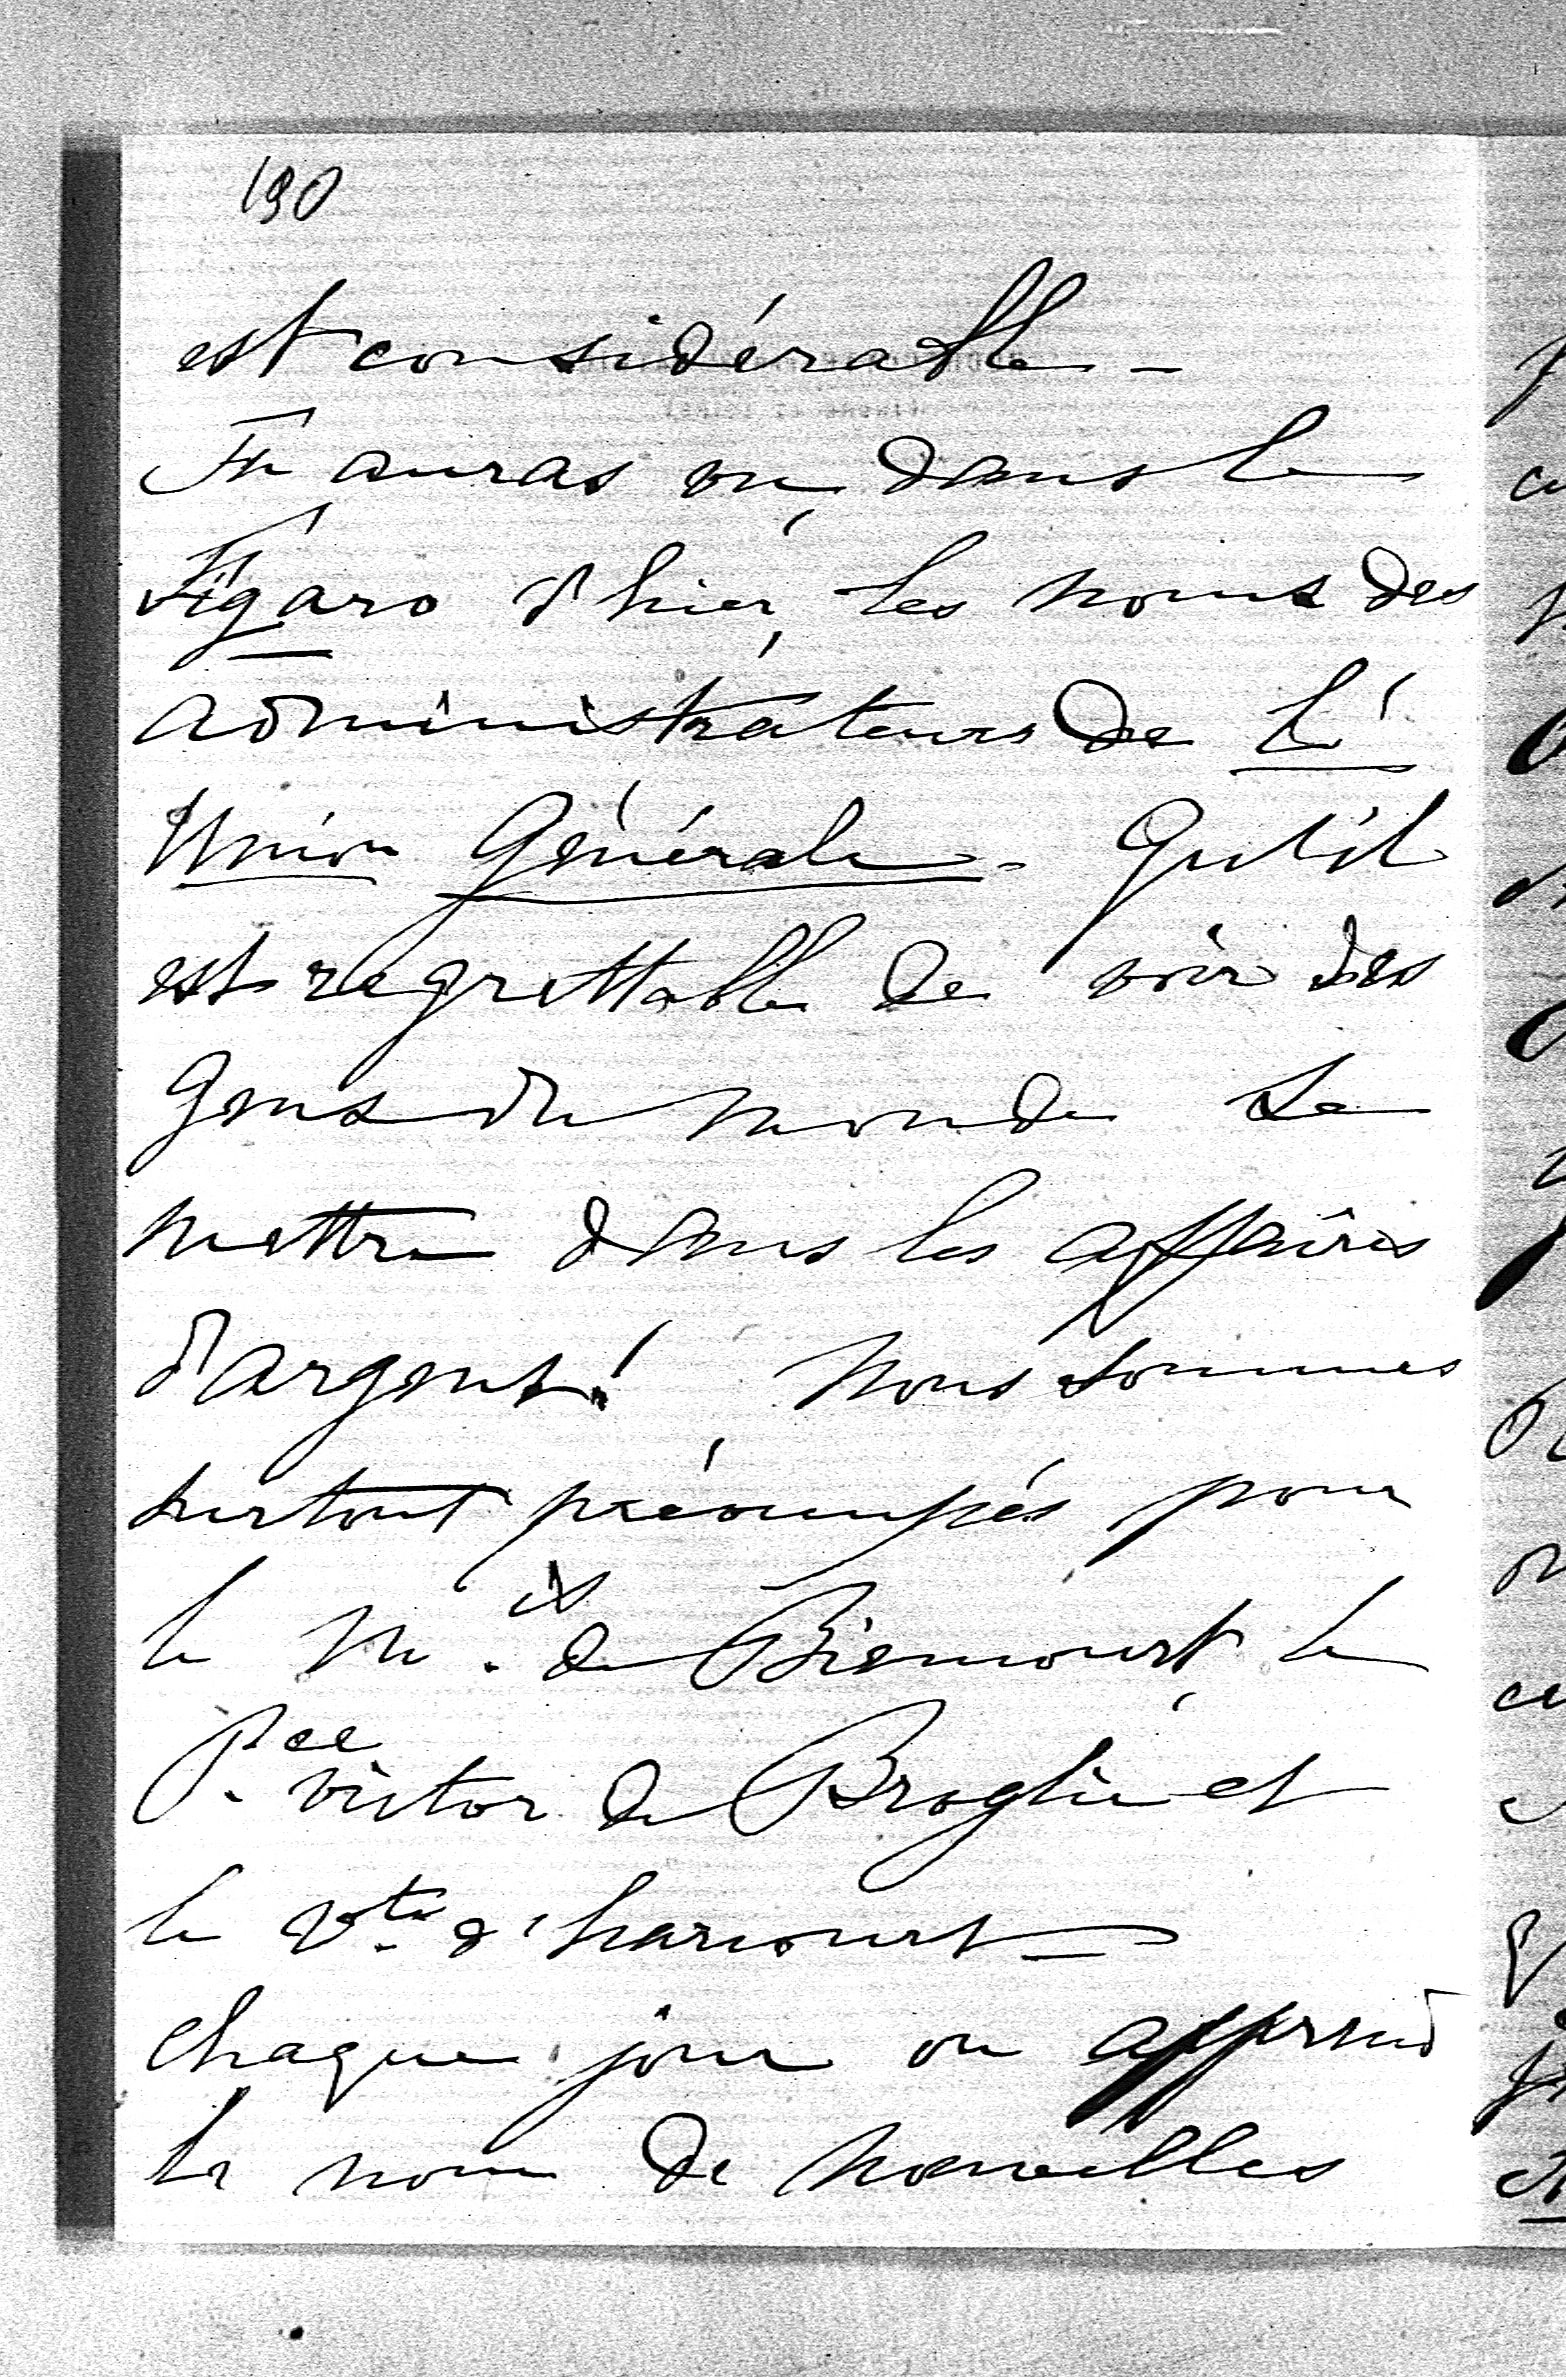 190
est considérable -
Tu auras vu, dans le
Figaro d'hier, les noms des
administrateurs de L'
Union Générale. Qu'il
est regrettable de voir des
gens du monde se
mettre dans les affaires
d'argent! Nous sommes
surtout préoccupés pour
le M.is de Biencourt, le
P.ce Victor de Broglie et
le V.te d'harcourt -
chaque jour on apprend
le nom de nouvelles